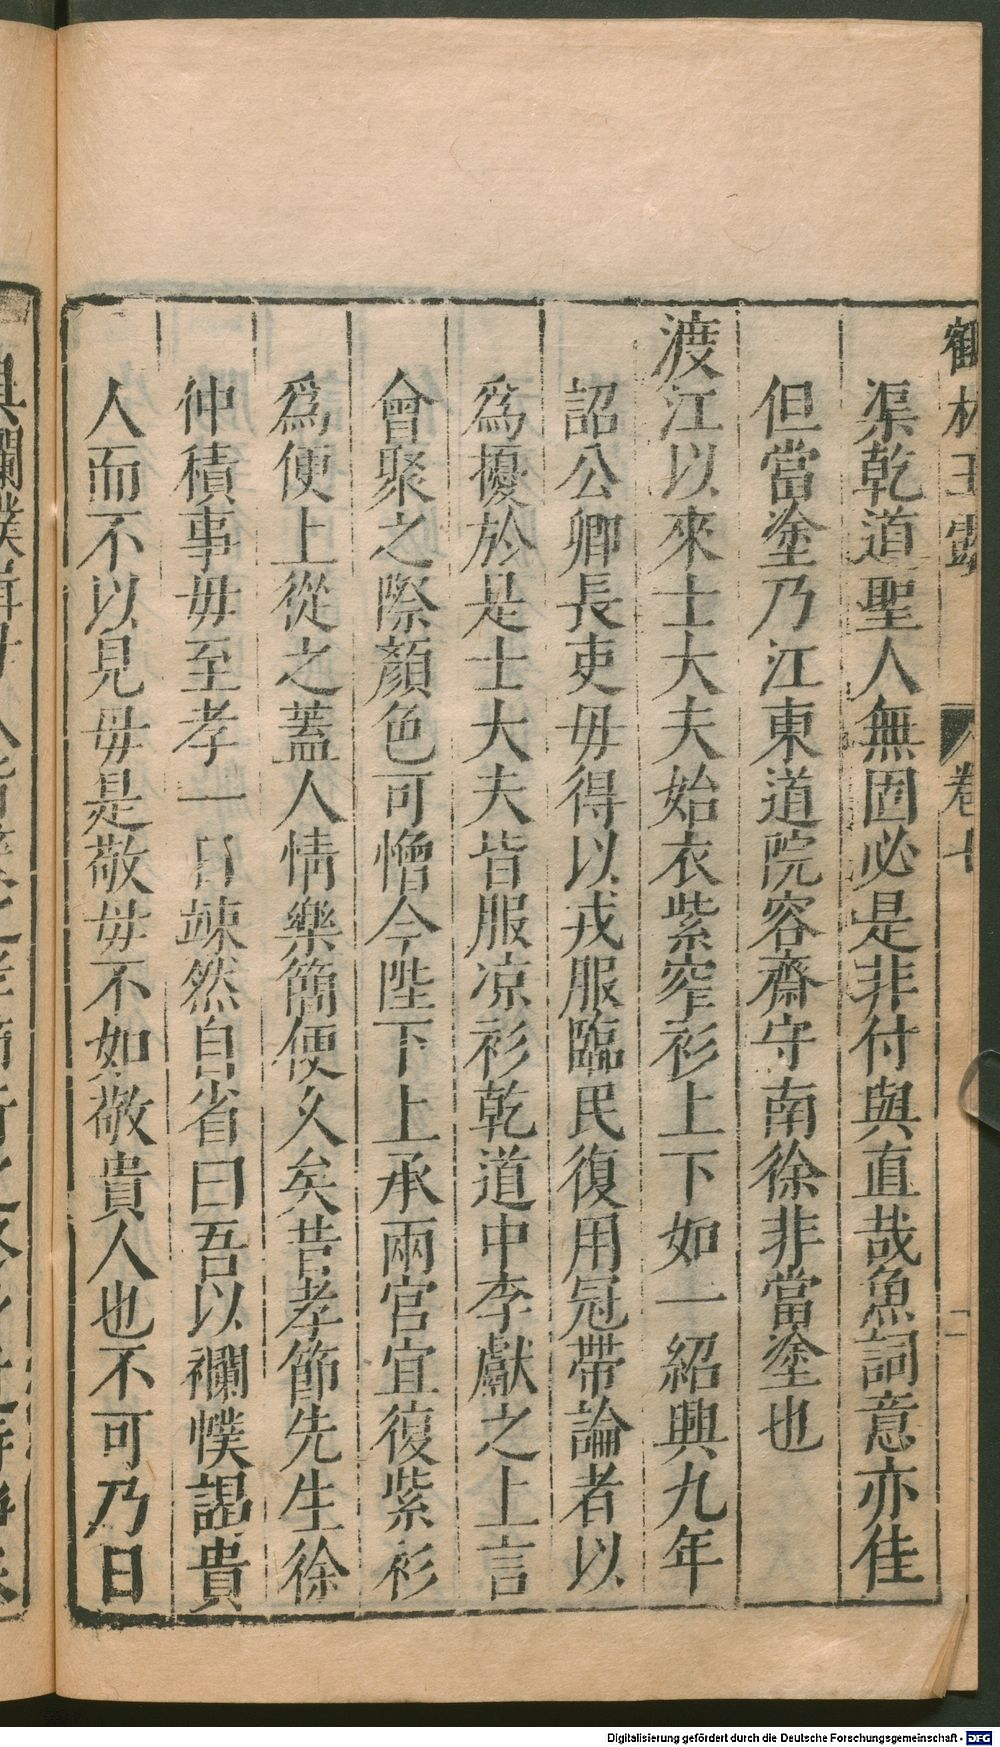 鶴林玉露 卷七
渠乾道聖人無固必是非付與直哉魚詞意亦佳
但當塗乃江東道院容齋守南徐非當塗也
渡江以來士大夫始衣紫窄衫上下如一紹興九年
詔公卿長吏毋得以戎服臨民復用冠帶論者以
為擾於是士大夫皆服凉衫乾道中李獻之上言
會聚之際顏色可憎今陛下上承兩宮宜復紫衫
為便上從之蓋人情樂簡便久矣昔孝節先生徐
仲積事毋至孝一日竦然自省曰吾以襴幞謁貴
人而不以見毋是敬毋不如敬貴人也不可乃日
Digitalisierung gefördert durch die Deutsche Forschungsgemeinschaft - DFG